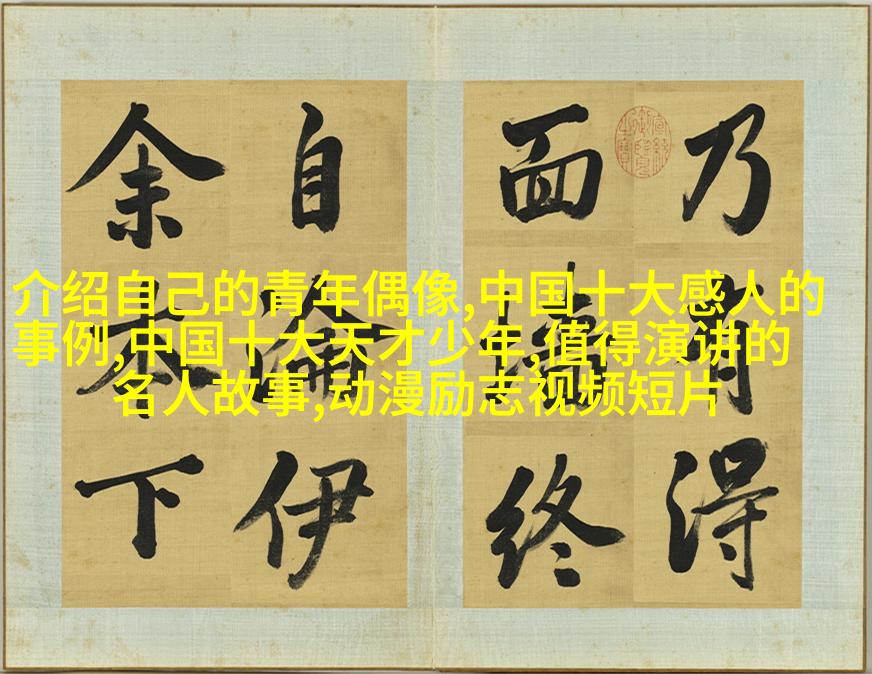 介绍自己的青年偶像,中国十大感人的
事例,中国十大天才少年,值得演讲的
名人故事,动漫励志视频短片
乃有得
面終
自論伊
余本下